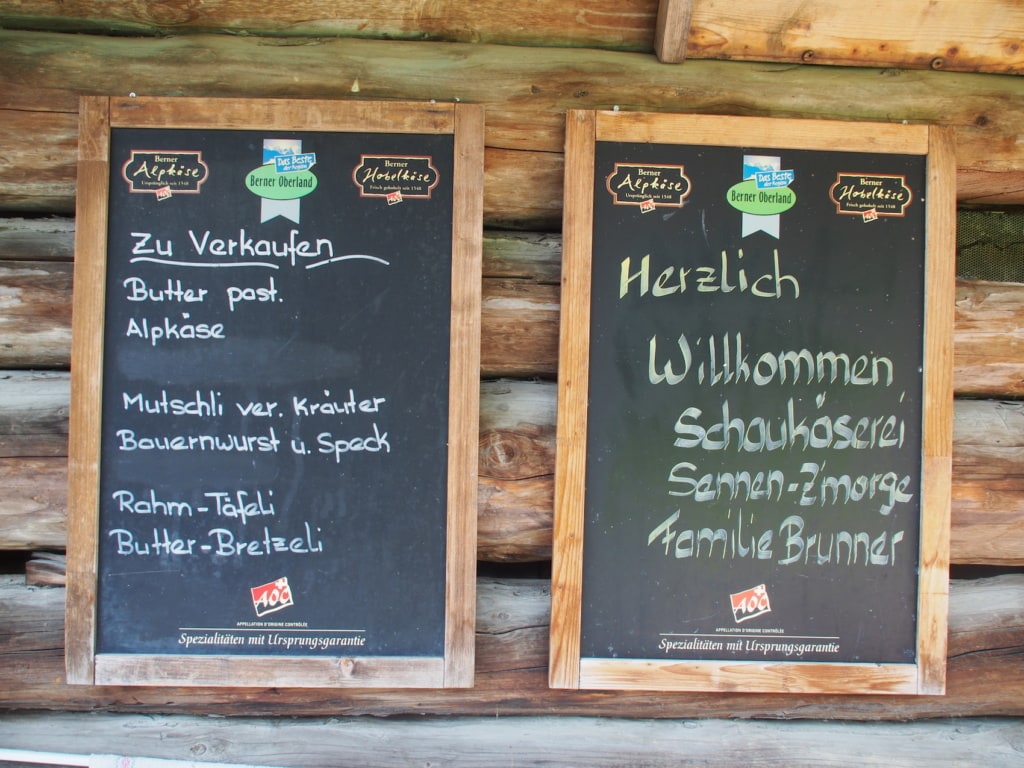 Berner
Alpkäse
Ursprünglich seit 1548
AOC
Das Beste
der Region
Berner Oberland
Berner
Hobelkäse
Frisch gehobelt seit 1548
AOC
Zu Verkaufen
Butter past.
Alpkäse
Mutschli ver. Kräuter
Bauernwurst u. Speck
Rahm-Täfeli
Butter-Bretzeli
AOC
APPELLATION D'ORIGINE CONTRÔLÉE
Spezialitäten mit Ursprungsgarantie
Berner
Alpkäse
Ursprünglich seit 1548
AOC
Das Beste
der Region
Berner Oberland
Berner
Hobelkäse
Frisch gehobelt seit 1548
AOC
Herzlich
Willkommen
Schaukäserei
Sennen-Z'morge
Familie Brunner
AOC
APPELLATION D'ORIGINE CONTRÔLÉE
Spezialitäten mit Ursprungsgarantie